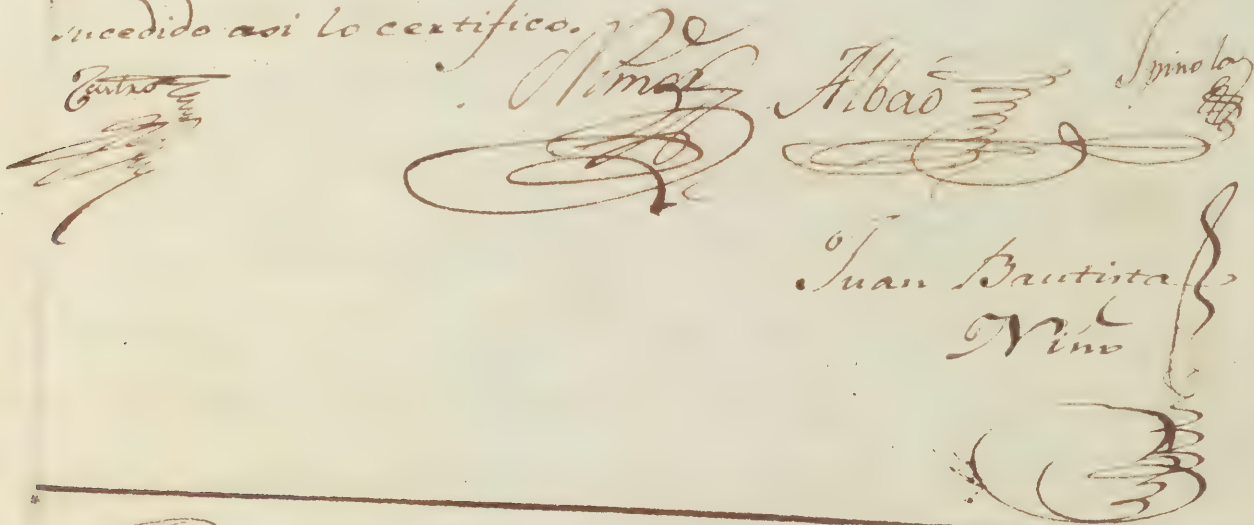 sucedido asi lo certifico.
Castro Albao Spinola
Juan Bautista
Niño